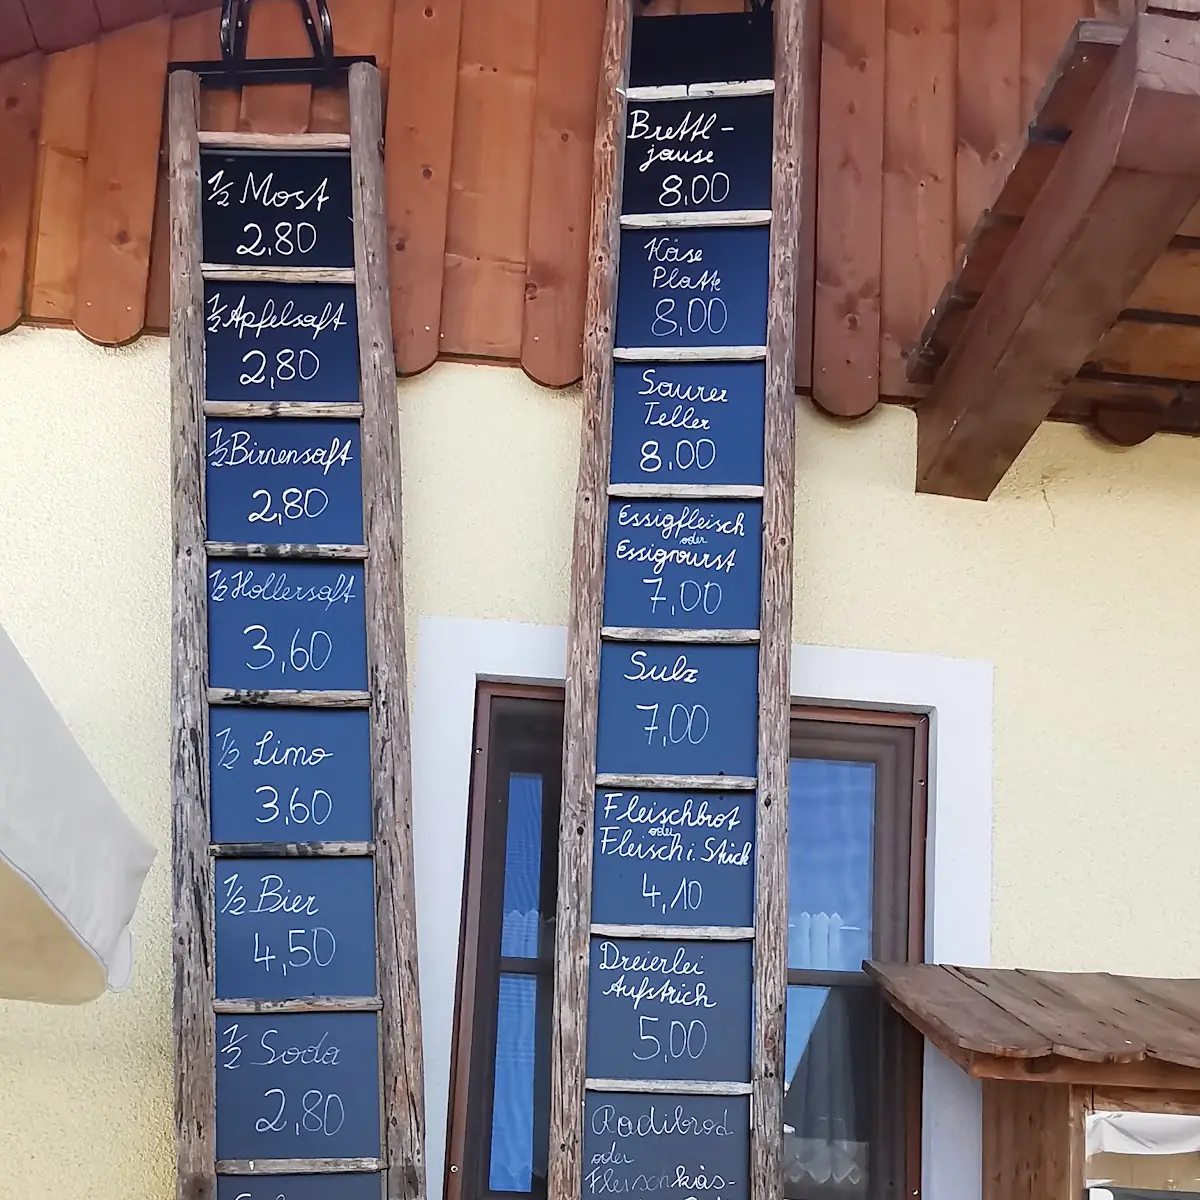 ½ Most
2,80
½ Apfelsaft
2,80
½ Birnensaft
2,80
½ Hollersaft
3,60
½ Limo
3,60
½ Bier
4,50
½ Soda
2,80
Brettl-
jause
8,00
Käse
Platte
8,00
Saurer
Teller
8,00
Essigfleisch
oder
Essigwurst
7,00
Sulz
7,00
Fleischbrot
oder
Fleisch i. Stück
4,10
Dreierlei
Aufstrich
5,00
Radibrod
oder
Fleischkäs-